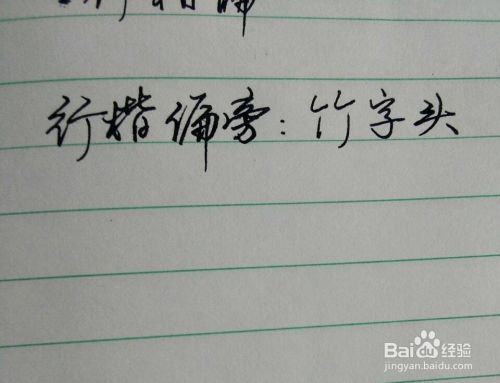 行楷偏旁：竹字头
Bai du 经验
jingyan.baidu.com